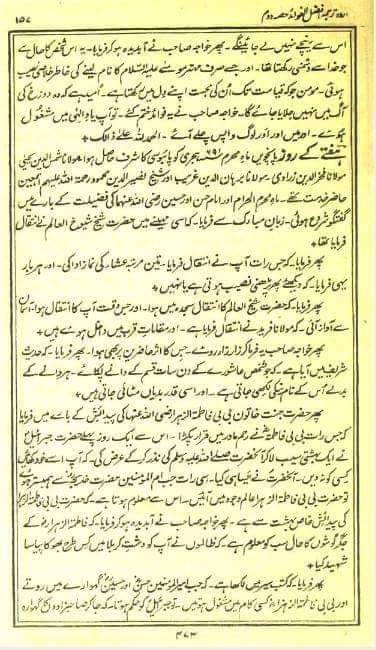 اردو ترجمہ افضل الفوائد حصہ دوم ۱۵۷
اس سے نیچے نہیں لے جائینگے۔ پھر خواجہ صاحب نے آبدیدہ ہو کر فرمایا۔ یہ اس شخص کا حال ہے
جو خدا سے دشمنی رکھتا تھا۔ اور جسے صرف مہتر موسےٰ علیہ السلام کا نام لینے کی خاطر خلاصی نصیب
ہوئی۔ مومن جو کہ قیامت تک اُن کی محبت اپنے دل میں رکھتا ہے۔ اُمید ہے کہ وہ دوزخ کی
آگ میں نہیں جلایا جائے گا۔ خواجہ صاحب نے یہ فوائد ختم کئے۔ تو آپ یادِ الٰہی میں مشغول
ہوئے۔ اور میں اور اور لوگ واپس چلے آئے۔ الحمد للہ علے ذالک
ہفتے کے روز پانچویں ماہ محرم ہجری کو پائبوسی کا شرف حاصل ہوا۔ مولانا شمس الدین یحییٰ
مولانا فخر الدین زرادی۔ مولانا برہان الدین غریب اور شیخ نصیر الدین محمود رحمۃ اللہ علیہم اجمعین
حاضر خدمت تھے۔ ماہ محرم الحرام اور امام حسن اور حسین رضی اللہ عنہما کی فضیلت کے بارے میں
گفتگو شروع ہوئی۔ زبان مبارک سے فرمایا۔ کہ اسی مہینے میں حضرت شیخ شیوخ العالم نے انتقال
فرمایا تھا
پھر فرمایا۔ کہ جس رات آپ نے انتقال فرمایا۔ تین مرتبہ عشاء کی نماز ادا کی۔ اور ہر بار
یہی فرمایا۔ کہ دیکھئے پھر پڑھنی نصیب ہوتی ہے یا نہیں
پھر فرمایا۔ کہ حضرت شیخ العالم کا انتقال سجدہ میں ہوا۔ اور جس وقت آپ کا انتقال ہوا۔ آسمان
سے آواز آئی۔ کہ مولانا فرید نے انتقال فرمایا ہے۔ اور مقامات قرب میں داخل ہوئے ہیں
پھر خواجہ صاحب یہ فرما کر زار زار روئے۔ جس کا اثر حاضرین پر بھی ہوا۔ پھر فرمایا۔ کہ حدیث
شریف میں آیا ہے۔ کہ جو شخص عاشورے کے دن سات قسم کے دانے پکائے۔ ہر دانے کے
بدلے اس کے نام نیکی لکھی جاتی ہے۔ اور اسی قدر بدیاں مٹائی جاتی ہیں
پھر حضرت جنت خاتون بی بی فاطمۃ الزہرا رضی اللہ عنہا کی پیدائش کے بارے میں فرمایا
کہ جس رات بی بی فاطمہ نے رحم مادر میں قرار پکڑا۔ اس سے ایک روز پہلے حضرت جبرائیل
نے ایک بہشتی سیب لا کر آنحضرت صلے اللہ علیہ وسلم کی نذر کر کے عرض کی۔ کہ آپ اسے خود کھائیں
کسی کو نہ دیں۔ آنحضرت نے ایسا ہی کیا۔ اسی رات جب ام المومنین حضرت خدیجہ سے ہمبستر ہوئے
تو حضرت بی بی فاطمۃ الزہرا عالم وجود میں آئیں۔ اس سے معلوم ہوتا ہے۔ کہ حضرت بی بی فاطمۃ الزہرا
کی پیدائش خاص بہشت سے ہے۔ پھر خواجہ صاحب نے آبدیدہ ہو کر فرمایا۔ کہ فاطمۃ الزہرا کے
جگر گوشوں کا حال سب کو معلوم ہے۔ کہ ظالموں نے آپ کو دشت کربلا میں کس طرح بھوکا پیاسا
شہید کیا
پھر فرمایا۔ کہ کتب سیر میں لکھا ہے۔ کہ جب امیر المومنین حسن اور حسین گہوارے میں روتے
اور بی بی فاطمۃ الزہرا کسی کام میں مشغول ہوتیں تو جبرائیل کو حکم ہوتا۔ کہ جا کر صاحبزادہ کا گہوارہ
۴۷۳